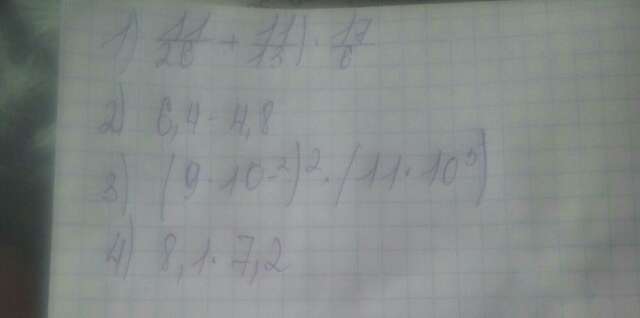 1) 11/26 + 11/13) · 17/6
2) 6,4 - 4,8
3) (9·10⁻²)² · (11·10⁵)
4) 8,1·7,2